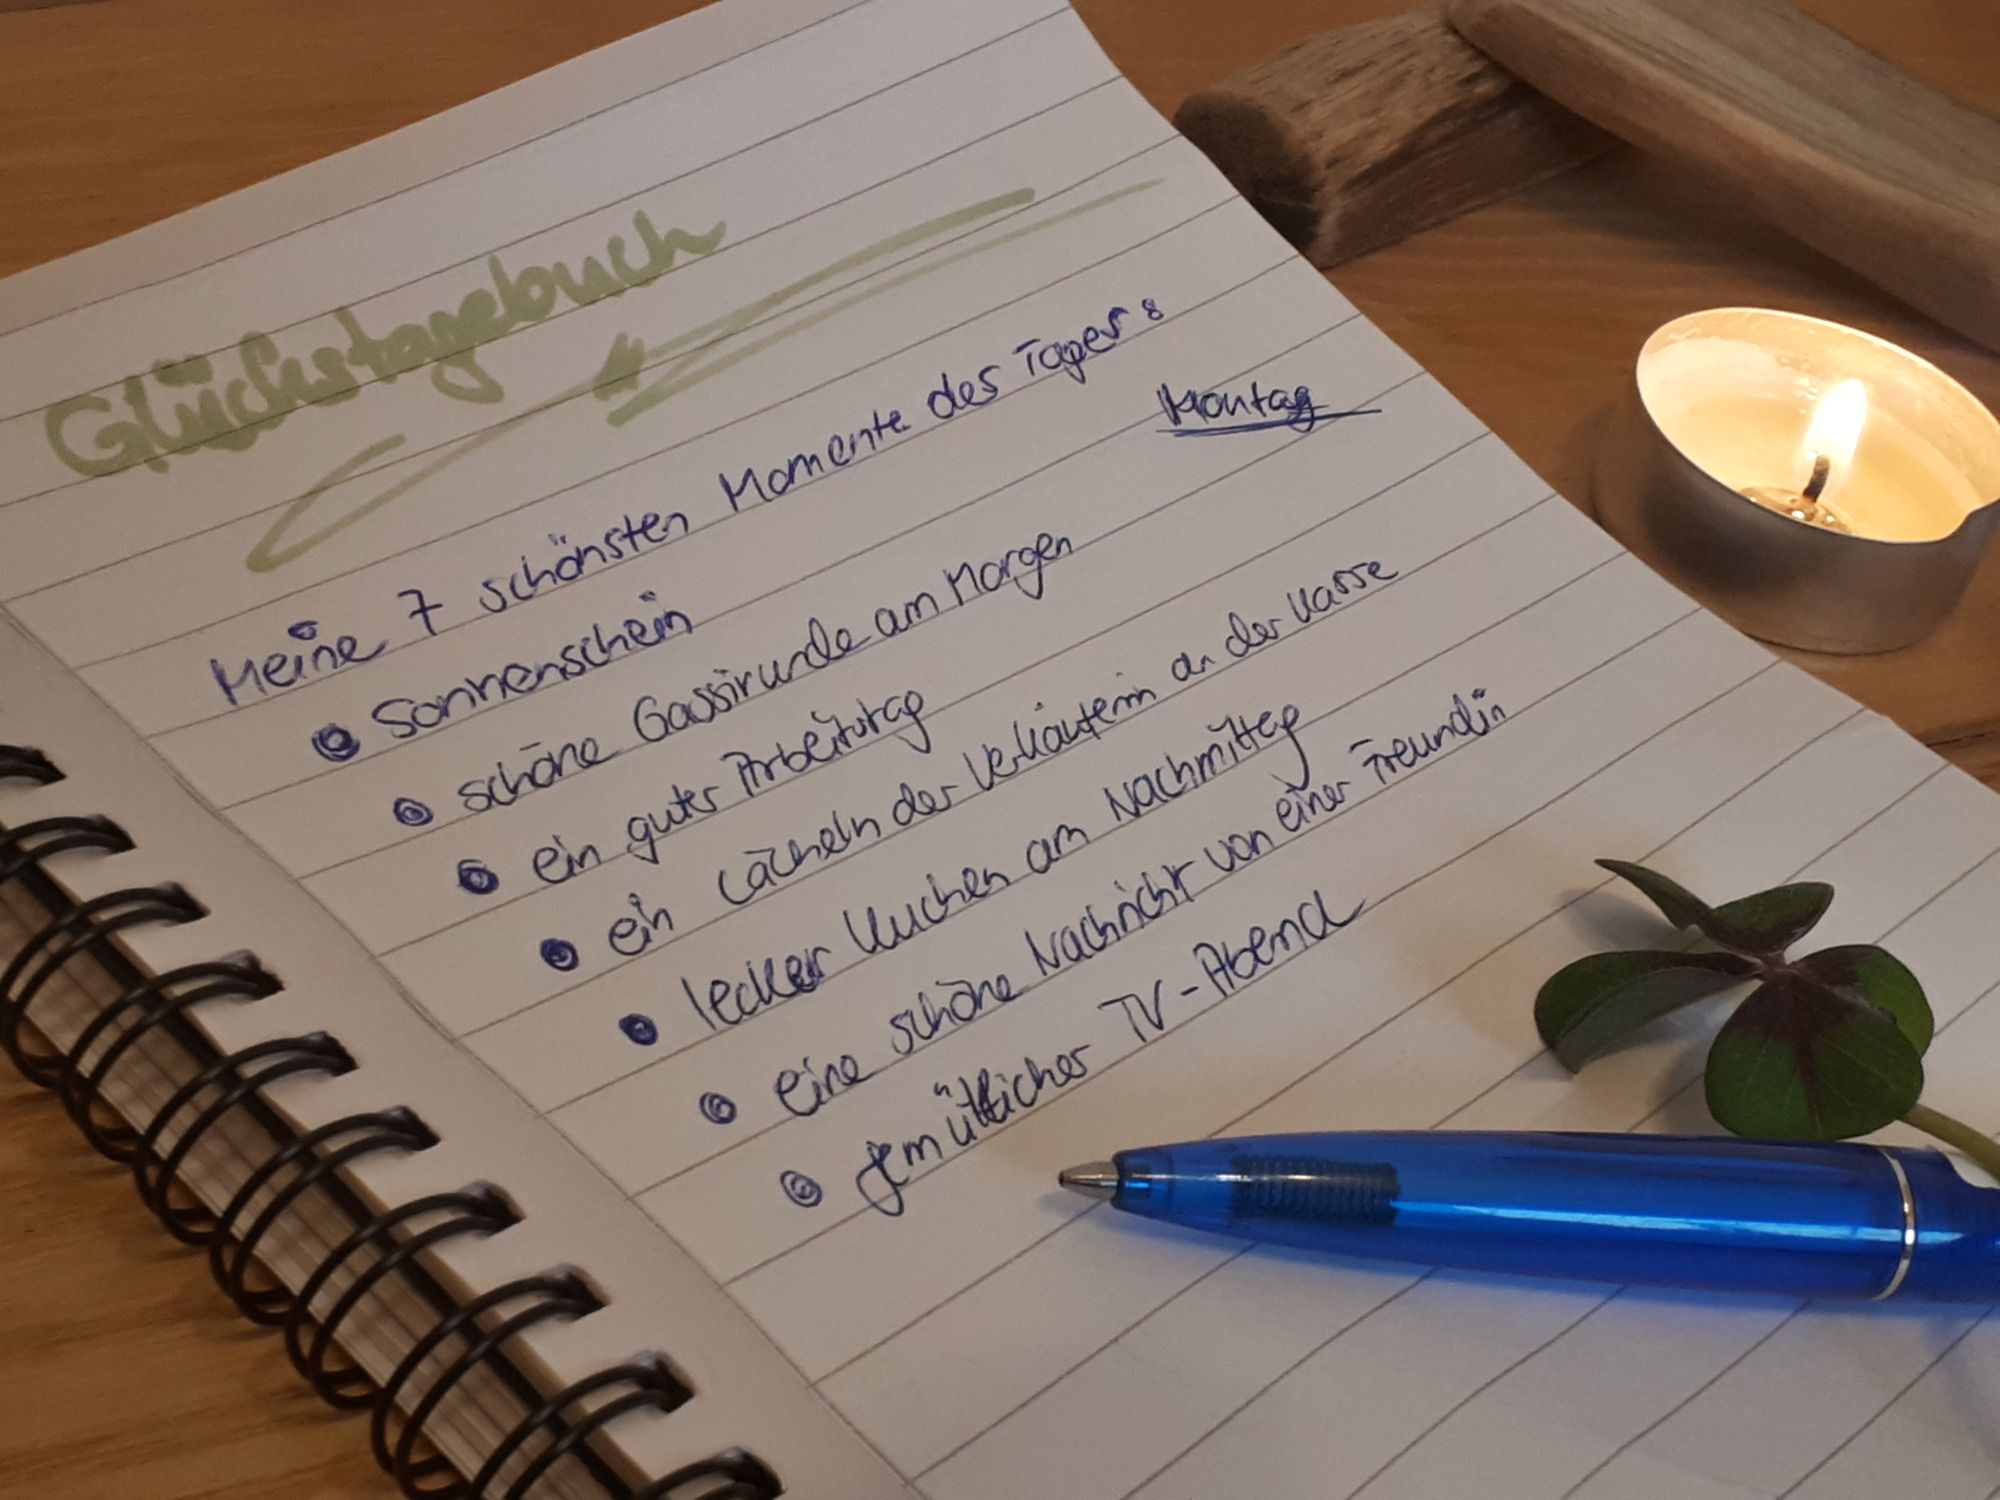 Glückstagebuch
Meine 7 schönsten Momente des Tages:
Montag
Sonnenschein
schöne Gassirunde am Morgen
ein guter Arbeitstag
ein Lächeln der Verkäuferin an der Kasse
lecker Kuchen am Nachmittag
eine schöne Nachricht von einer Freundin
gemütlicher TV-Abend